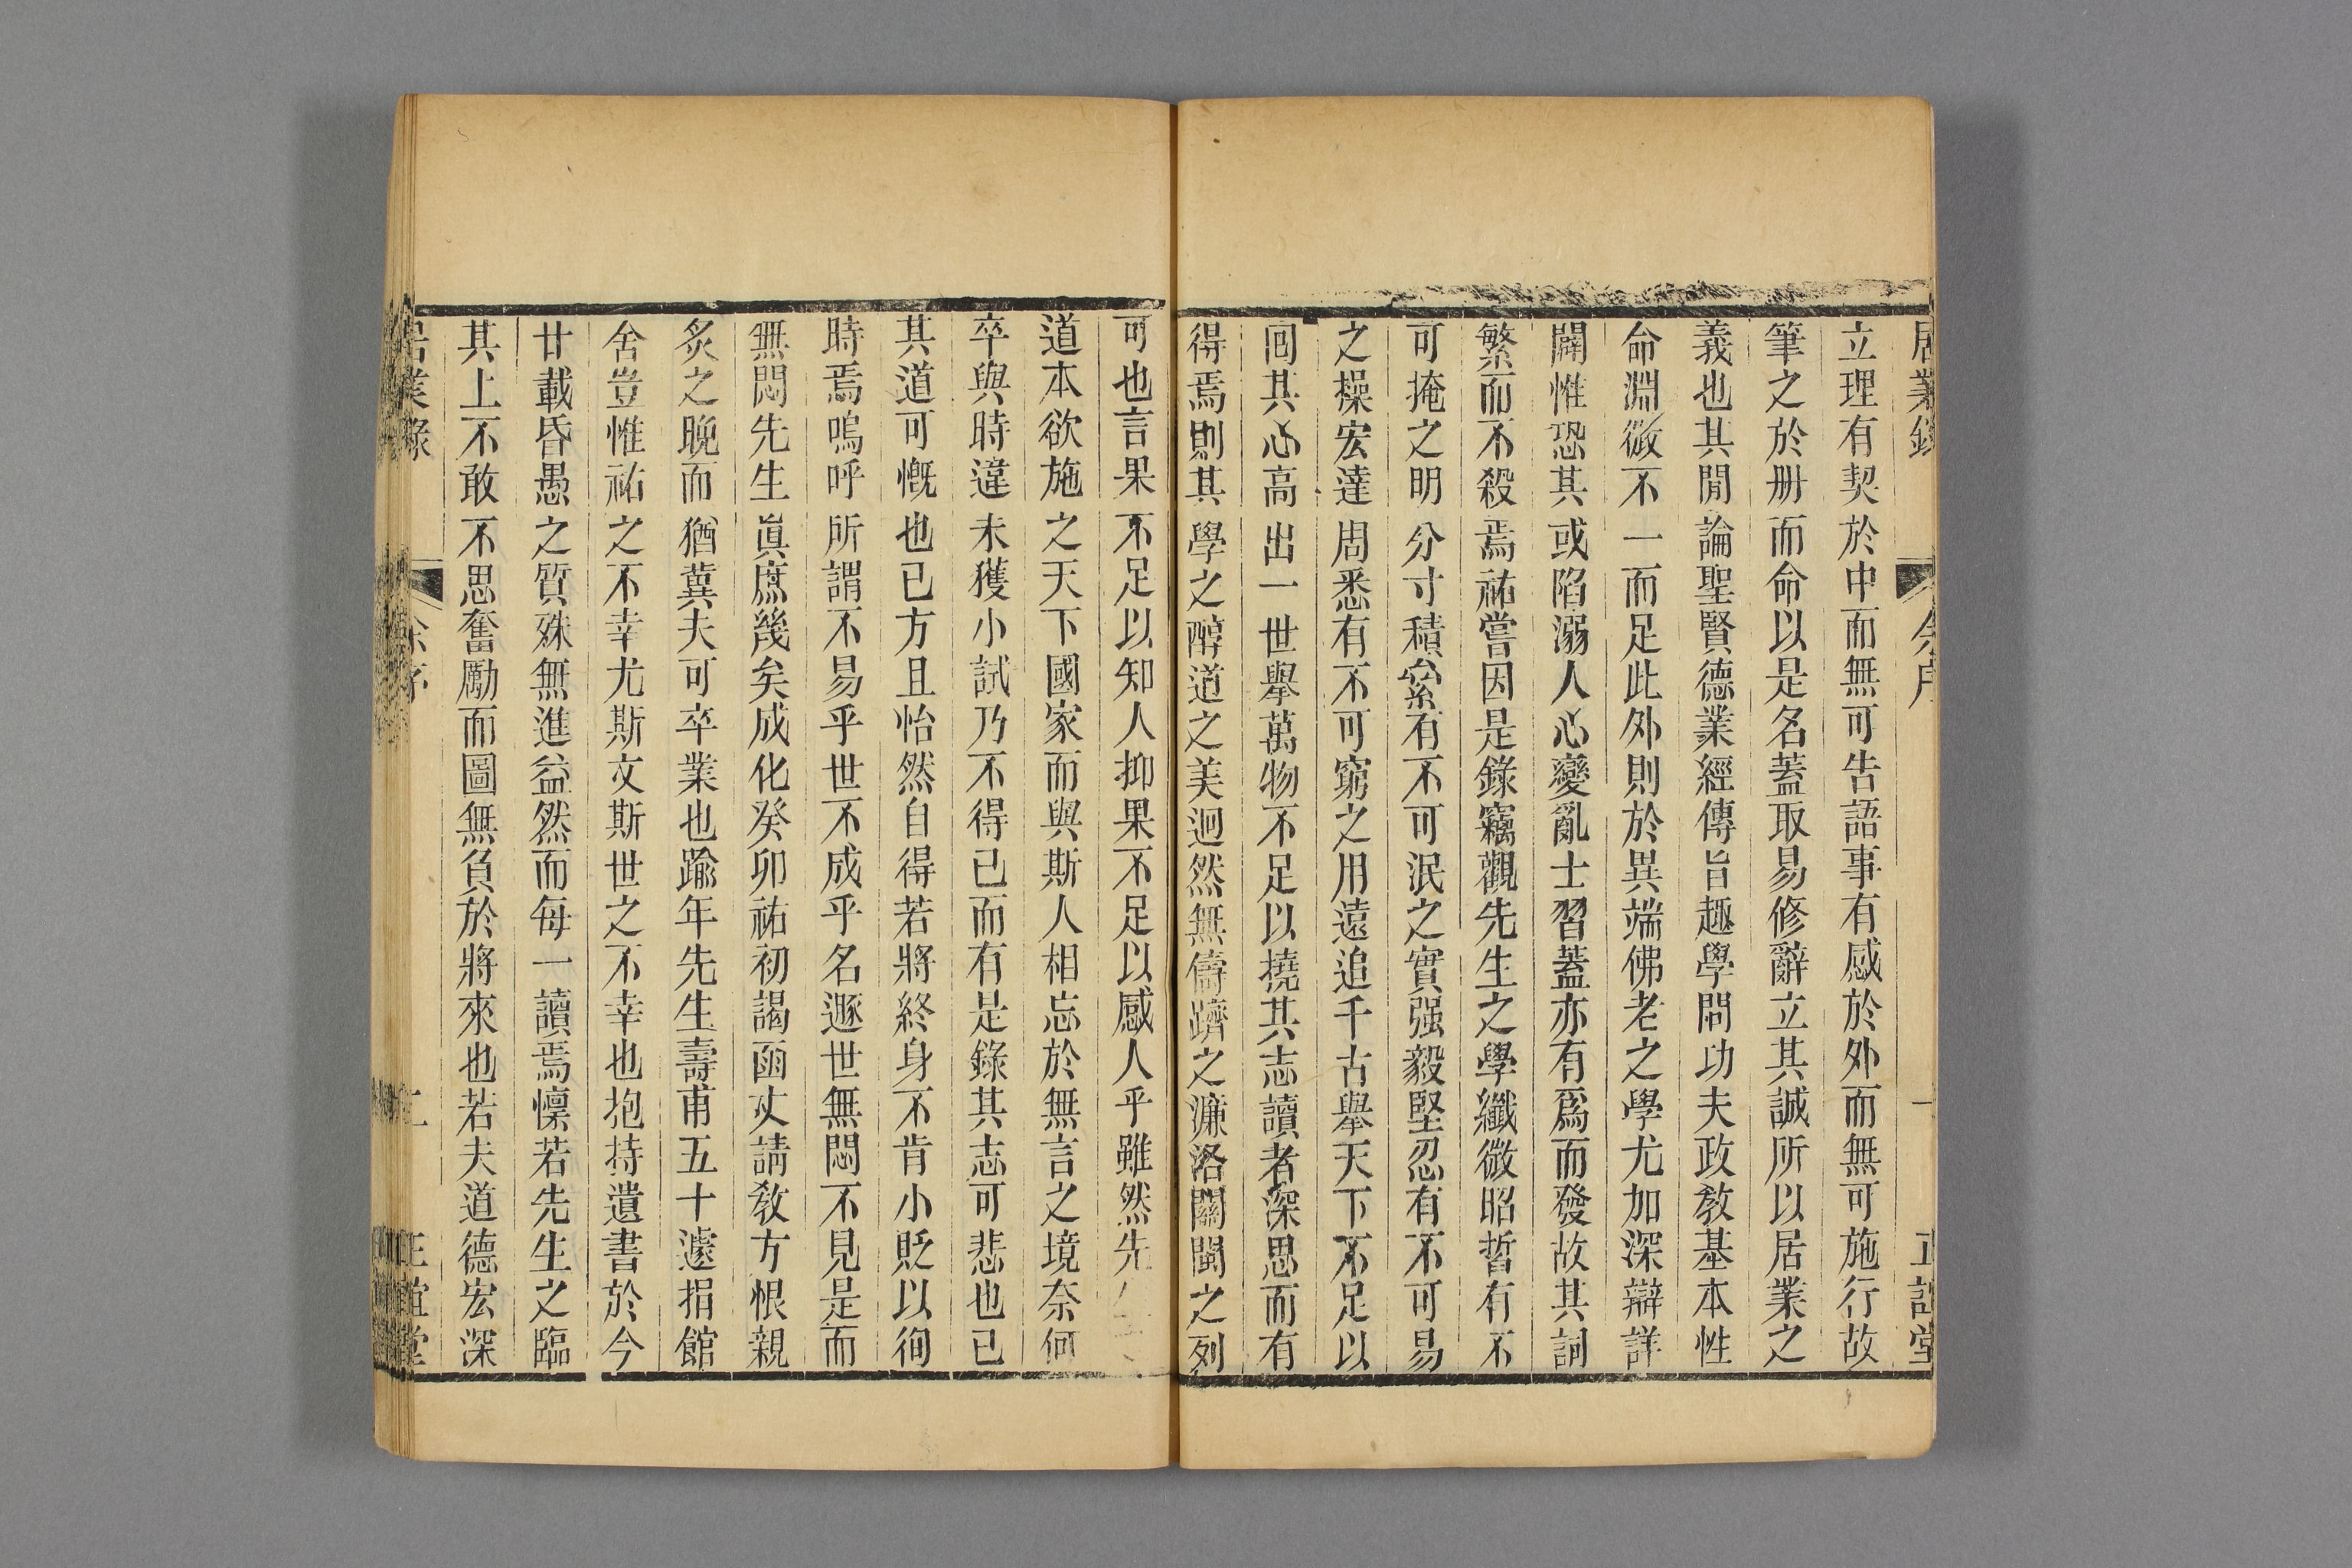 居業錄 余序 一 正誼堂
立理有契於中而無可告語事有感於外而無可施行故
筆之於册而命以是名蓋取易修辭立其誠所以居業之
義也其閒論聖賢德業經傳旨趣學問功夫政敎基本性
命淵微不一而足此外則於異端佛老之學尤加深辯詳
闢惟恐其或陷溺人心變亂士習蓋亦有爲而發故其詞
繁而不殺焉祐嘗因是錄竊觀先生之學纖微昭晳有不
可掩之明分寸積絫有不可泯之實强毅堅忍有不可易
之操宏達周悉有不可窮之用遠追千古舉天下不足以
囘其心高出一世舉萬物不足以撓其志讀者深思而有
得焉則其學之醇道之美迥然無儔躋之濂洛關閩之列
可也言果不足以知人抑果不足以感人乎雖然先
道本欲施之天下國家而與斯人相忘於無言之境奈何
卒與時違未獲小試乃不得已而有是錄其志可悲也已
其道可慨也已方且怡然自得若將終身不肯小貶以徇
時焉嗚呼所謂不易乎世不成乎名遯世無悶不見是而
無悶先生眞庶幾矣成化癸卯祐初謁函丈請敎方恨親
炙之晚而猶冀夫可卒業也踰年先生壽甫五十遽捐館
舍豈惟祐之不幸尤斯文斯世之不幸也抱持遺書於今
廿載昏愚之質殊無進益然而每一讀焉懍若先生之臨
其上不敢不思奮勵而圖無負於將來也若夫道德宏深
居業錄 余序 二 正誼堂